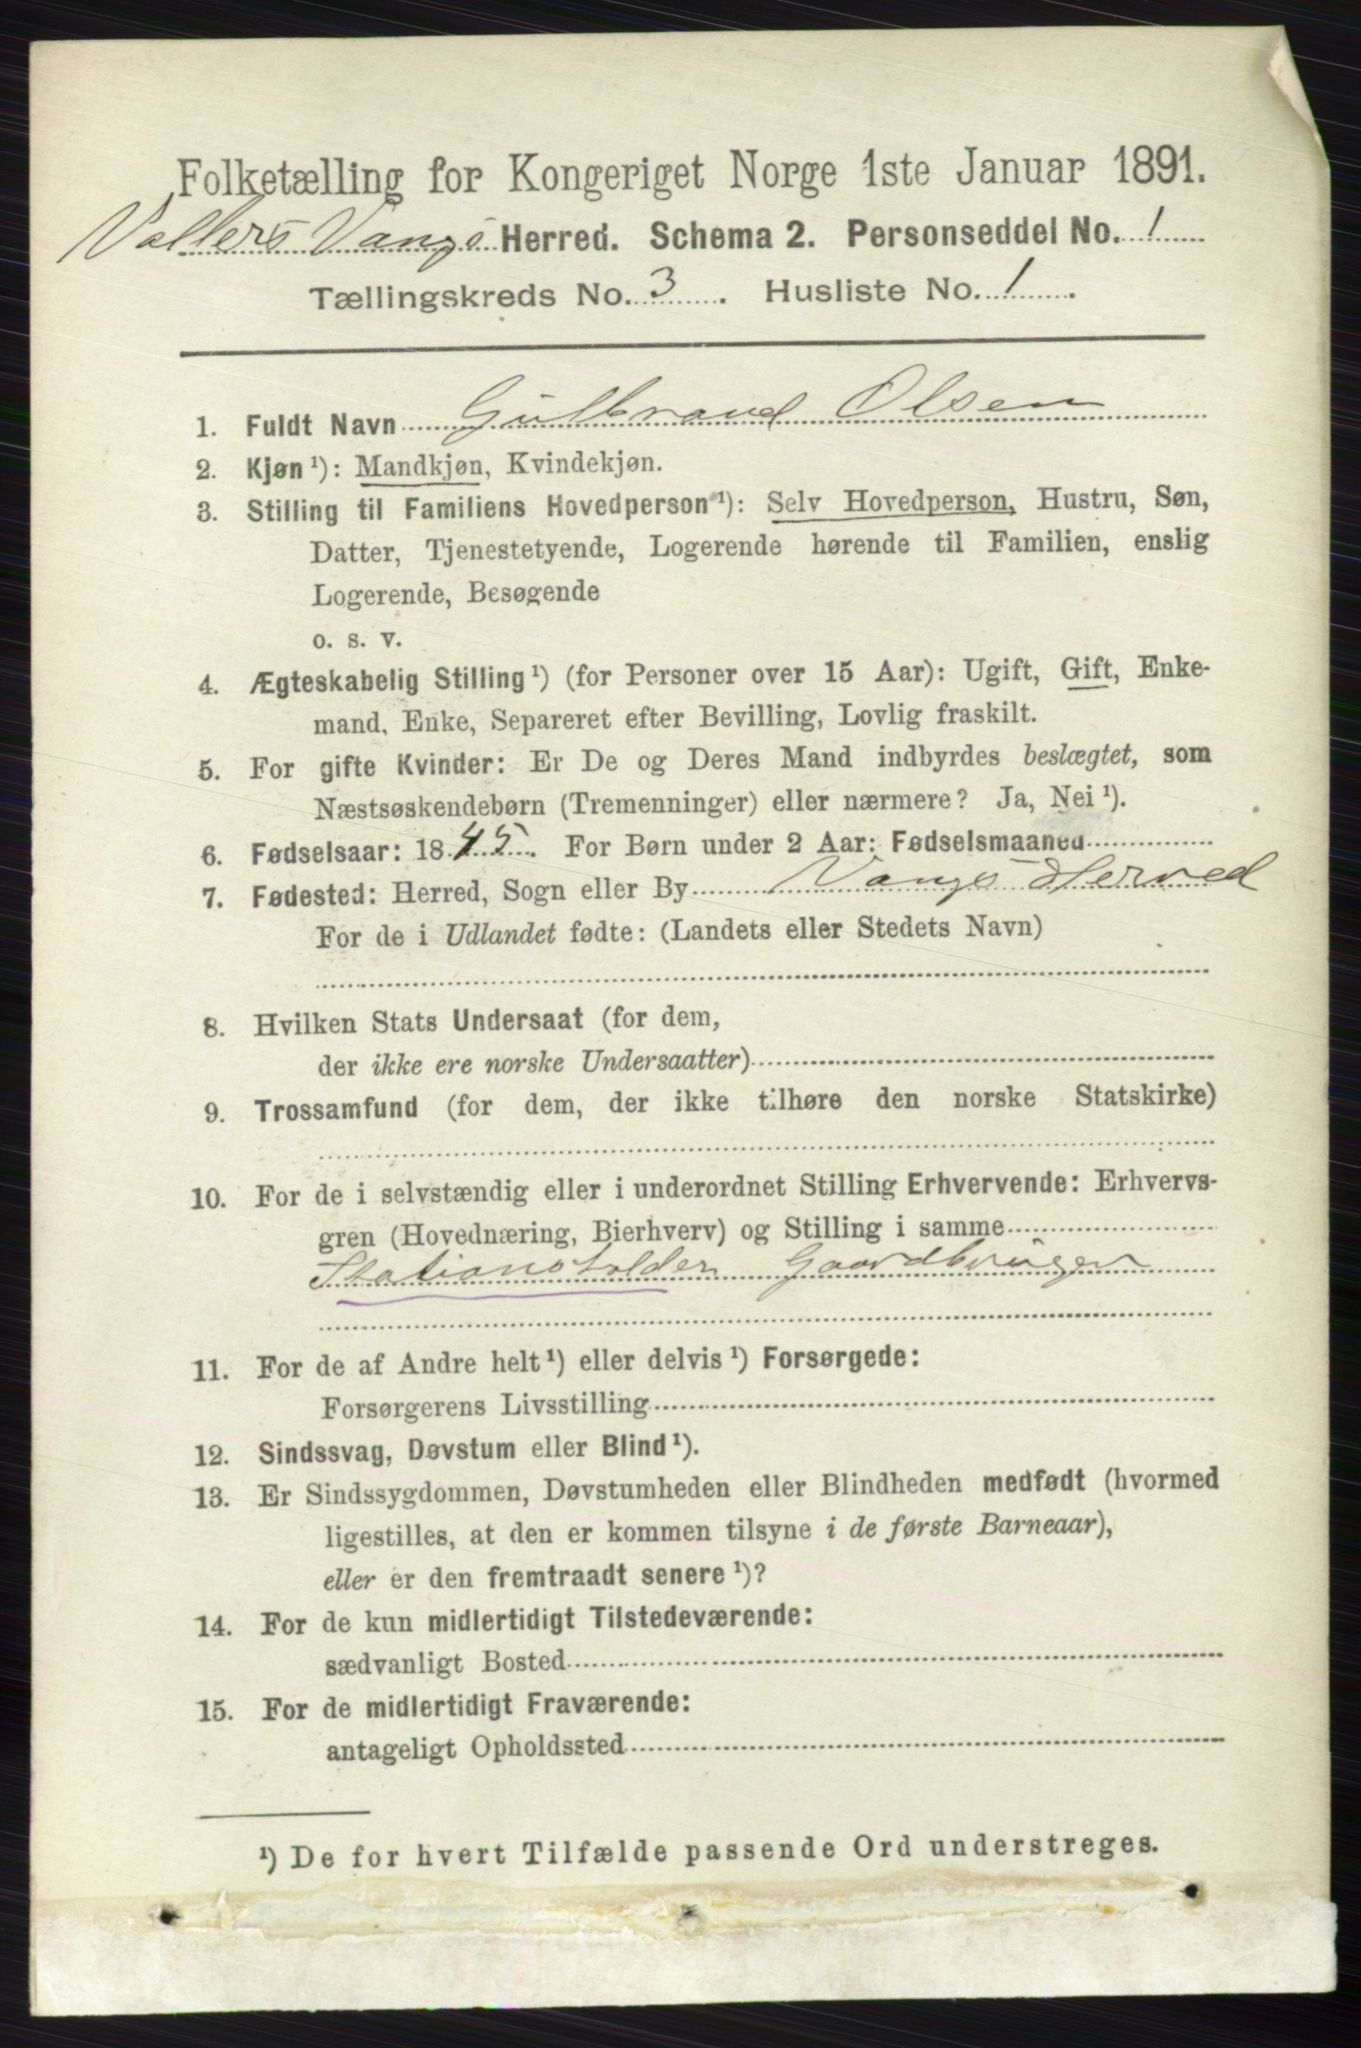 Folketælling for Kongeriget Norge 1ste Januar 1891.
Vallers Vangs Herred. Schema 2. Personseddel No. 1
Tællingskreds No. 3. Husliste No. 1.
1. Fuldt Navn Gulbrand Olsen
2. Kjøn¹): Mandkjøn, Kvindekjøn.
3. Stilling til Familiens Hovedperson¹): Selv Hovedperson, Hustru, Søn,
Datter, Tjenestetyende, Logerende hørende til Familien, enslig
Logerende, Besøgende
o. s. v.
4. Ægteskabelig Stilling¹) (for Personer over 15 Aar): Ugift, Gift, Enke-
mand, Enke, Separeret efter Bevilling, Lovlig fraskilt.
5. For gifte Kvinder: Er De og Deres Mand indbyrdes beslægtet, som
Næstsøskendebørn (Tremenninger) eller nærmere? Ja, Nei¹).
6. Fødselsaar: 1845. For Børn under 2 Aar: Fødselsmaaned
7. Fødested: Herred, Sogn eller By Vangs Herred
For de i Udlandet fødte: (Landets eller Stedets Navn)
8. Hvilken Stats Undersaat (for dem,
der ikke ere norske Undersaatter)
9. Trossamfund (for dem, der ikke tilhøre den norske Statskirke)
10. For de i selvstændig eller i underordnet Stilling Erhvervende: Erhvervs-
gren (Hovednæring, Bierhverv) og Stilling i samme
Stationsholder Gaardbruger
11. For de af Andre helt¹) eller delvis¹) Forsørgede:
Forsørgerens Livsstilling
12. Sindssvag, Døvstum eller Blind¹).
13. Er Sindssygdommen, Døvstumheden eller Blindheden medfødt (hvormed
ligestilles, at den er kommen tilsyne i de første Barneaar),
eller er den fremtraadt senere¹)?
14. For de kun midlertidigt Tilstedeværende:
sædvanligt Bosted
15. For de midlertidigt Fraværende:
antageligt Opholdssted
¹) De for hvert Tilfælde passende Ord understreges.